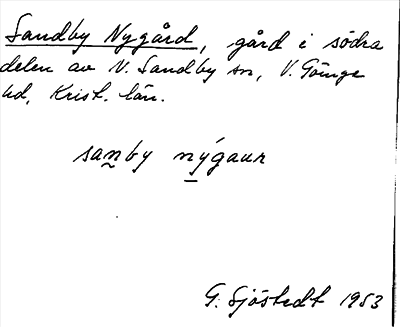 Sandby Nygård, gård i södra
delen av N. Sandby sn, V. Göinge
hd, Krist. län.
sanby nýgaur
G. Sjöstedt 1953